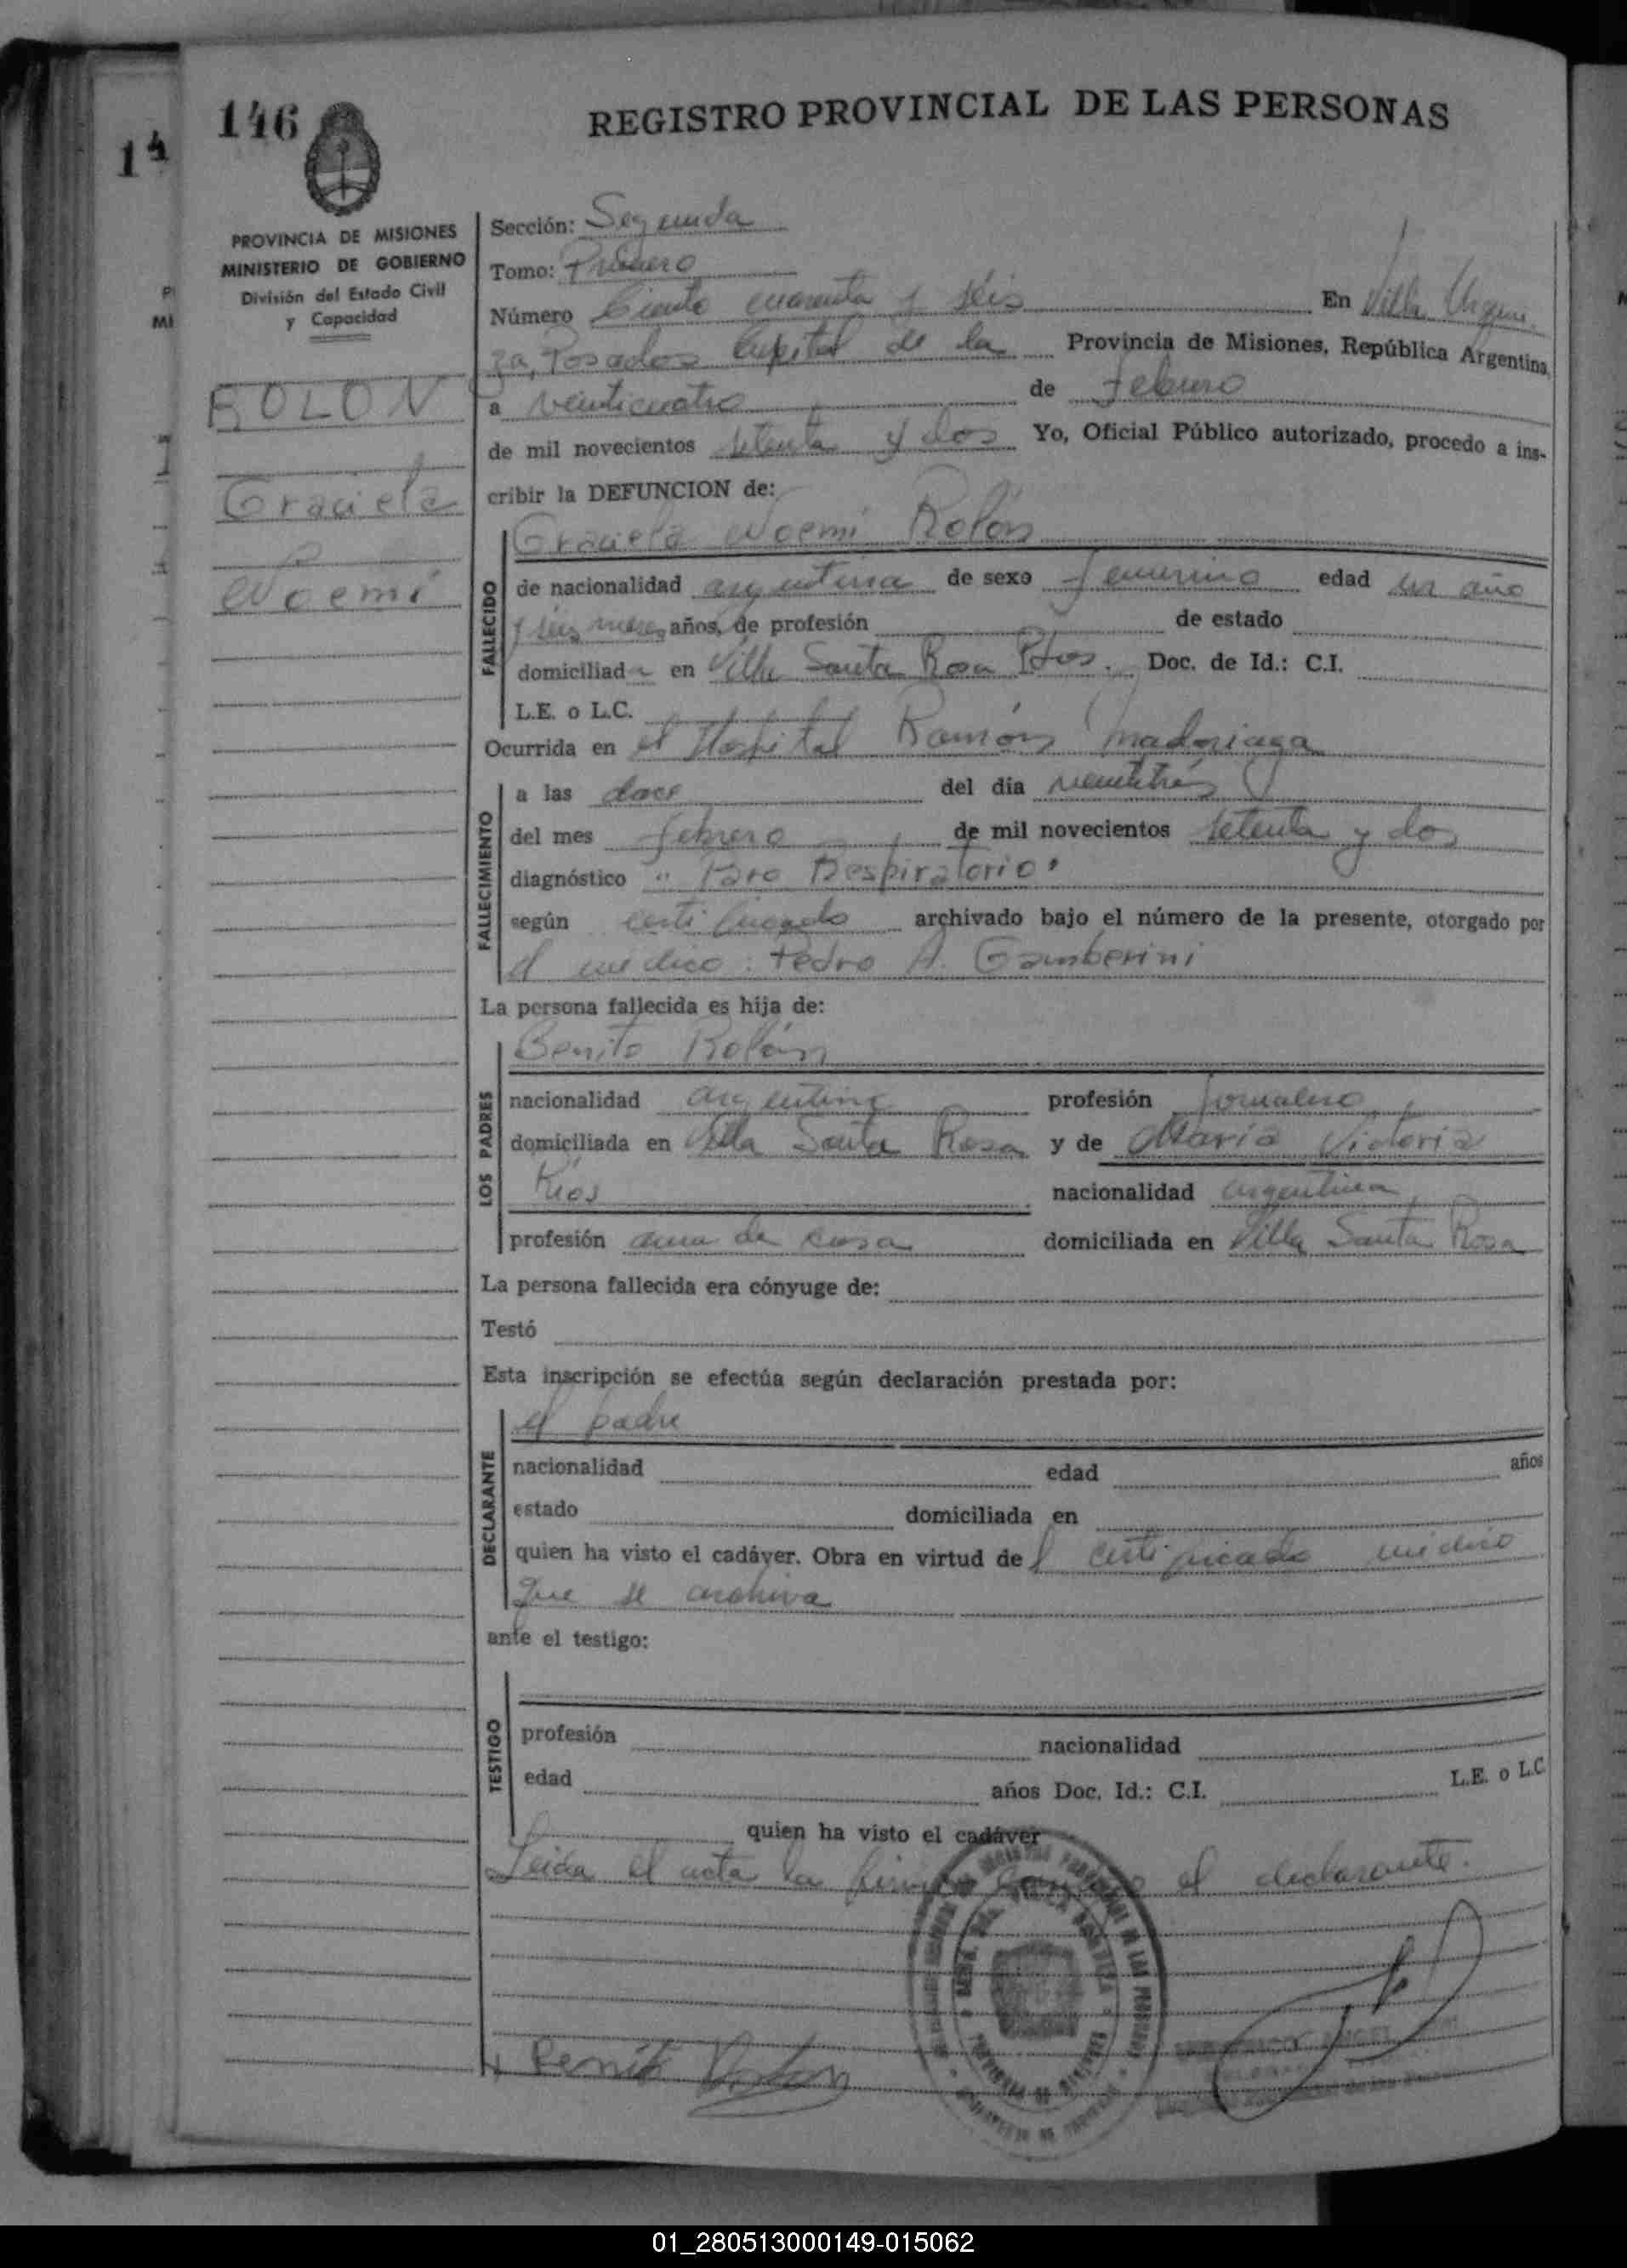 146
REGISTRO PROVINCIAL DE LAS PERSONAS
14
PROVINCIA DE MISIONES
MINISTERIO DE GOBIERNO
División del Estado Civil
y Capacidad
ROLON
Graciela
Noemi
Sección: Segunda
Tomo: Primero
Número Ciento cuarenta y seis En Villa Urqui
za, Posadas Capital de la Provincia de Misiones, República Argentina,
a veinticuatro de febrero
de mil novecientos setenta y dos Yo, Oficial Público autorizado, procedo a ins-
cribir la DEFUNCION de:
Graciela Noemi Rolón
FALLECIDO
de nacionalidad argentina de sexo femenino edad un año
y seis meses años, de profesión de estado
domiciliada en Villa Santa Rosa Pdas. Doc. de Id.: C.I.
L.E. o L.C.
Ocurrida en el Hospital Ramón Madariaga
FALLECIMIENTO
a las doce del día veintitrés
del mes febrero de mil novecientos setenta y dos
diagnóstico "Paro Respiratorio"
según certificado archivado bajo el número de la presente, otorgado por
el medico: Pedro A. Gamberini
La persona fallecida es hija de:
Benito Rolón
LOS PADRES
nacionalidad argentina profesión jornalero
domiciliada en Villa Santa Rosa y de María Victoria
Ríos nacionalidad argentina
profesión ama de casa domiciliada en Villa Santa Rosa
La persona fallecida era cónyuge de:
Testó
Esta inscripción se efectúa según declaración prestada por:
el padre
DECLARANTE
nacionalidad edad años
estado domiciliada en
quien ha visto el cadáver. Obra en virtud del certificado médico
que se archiva
ante el testigo:
TESTIGO
profesión nacionalidad
edad años Doc. Id.: C.I. L.E. o L.C
quien ha visto el cadáver
Leida el acta la firma conmigo el declarante.
Benito Rolon
01_280513000149-015062